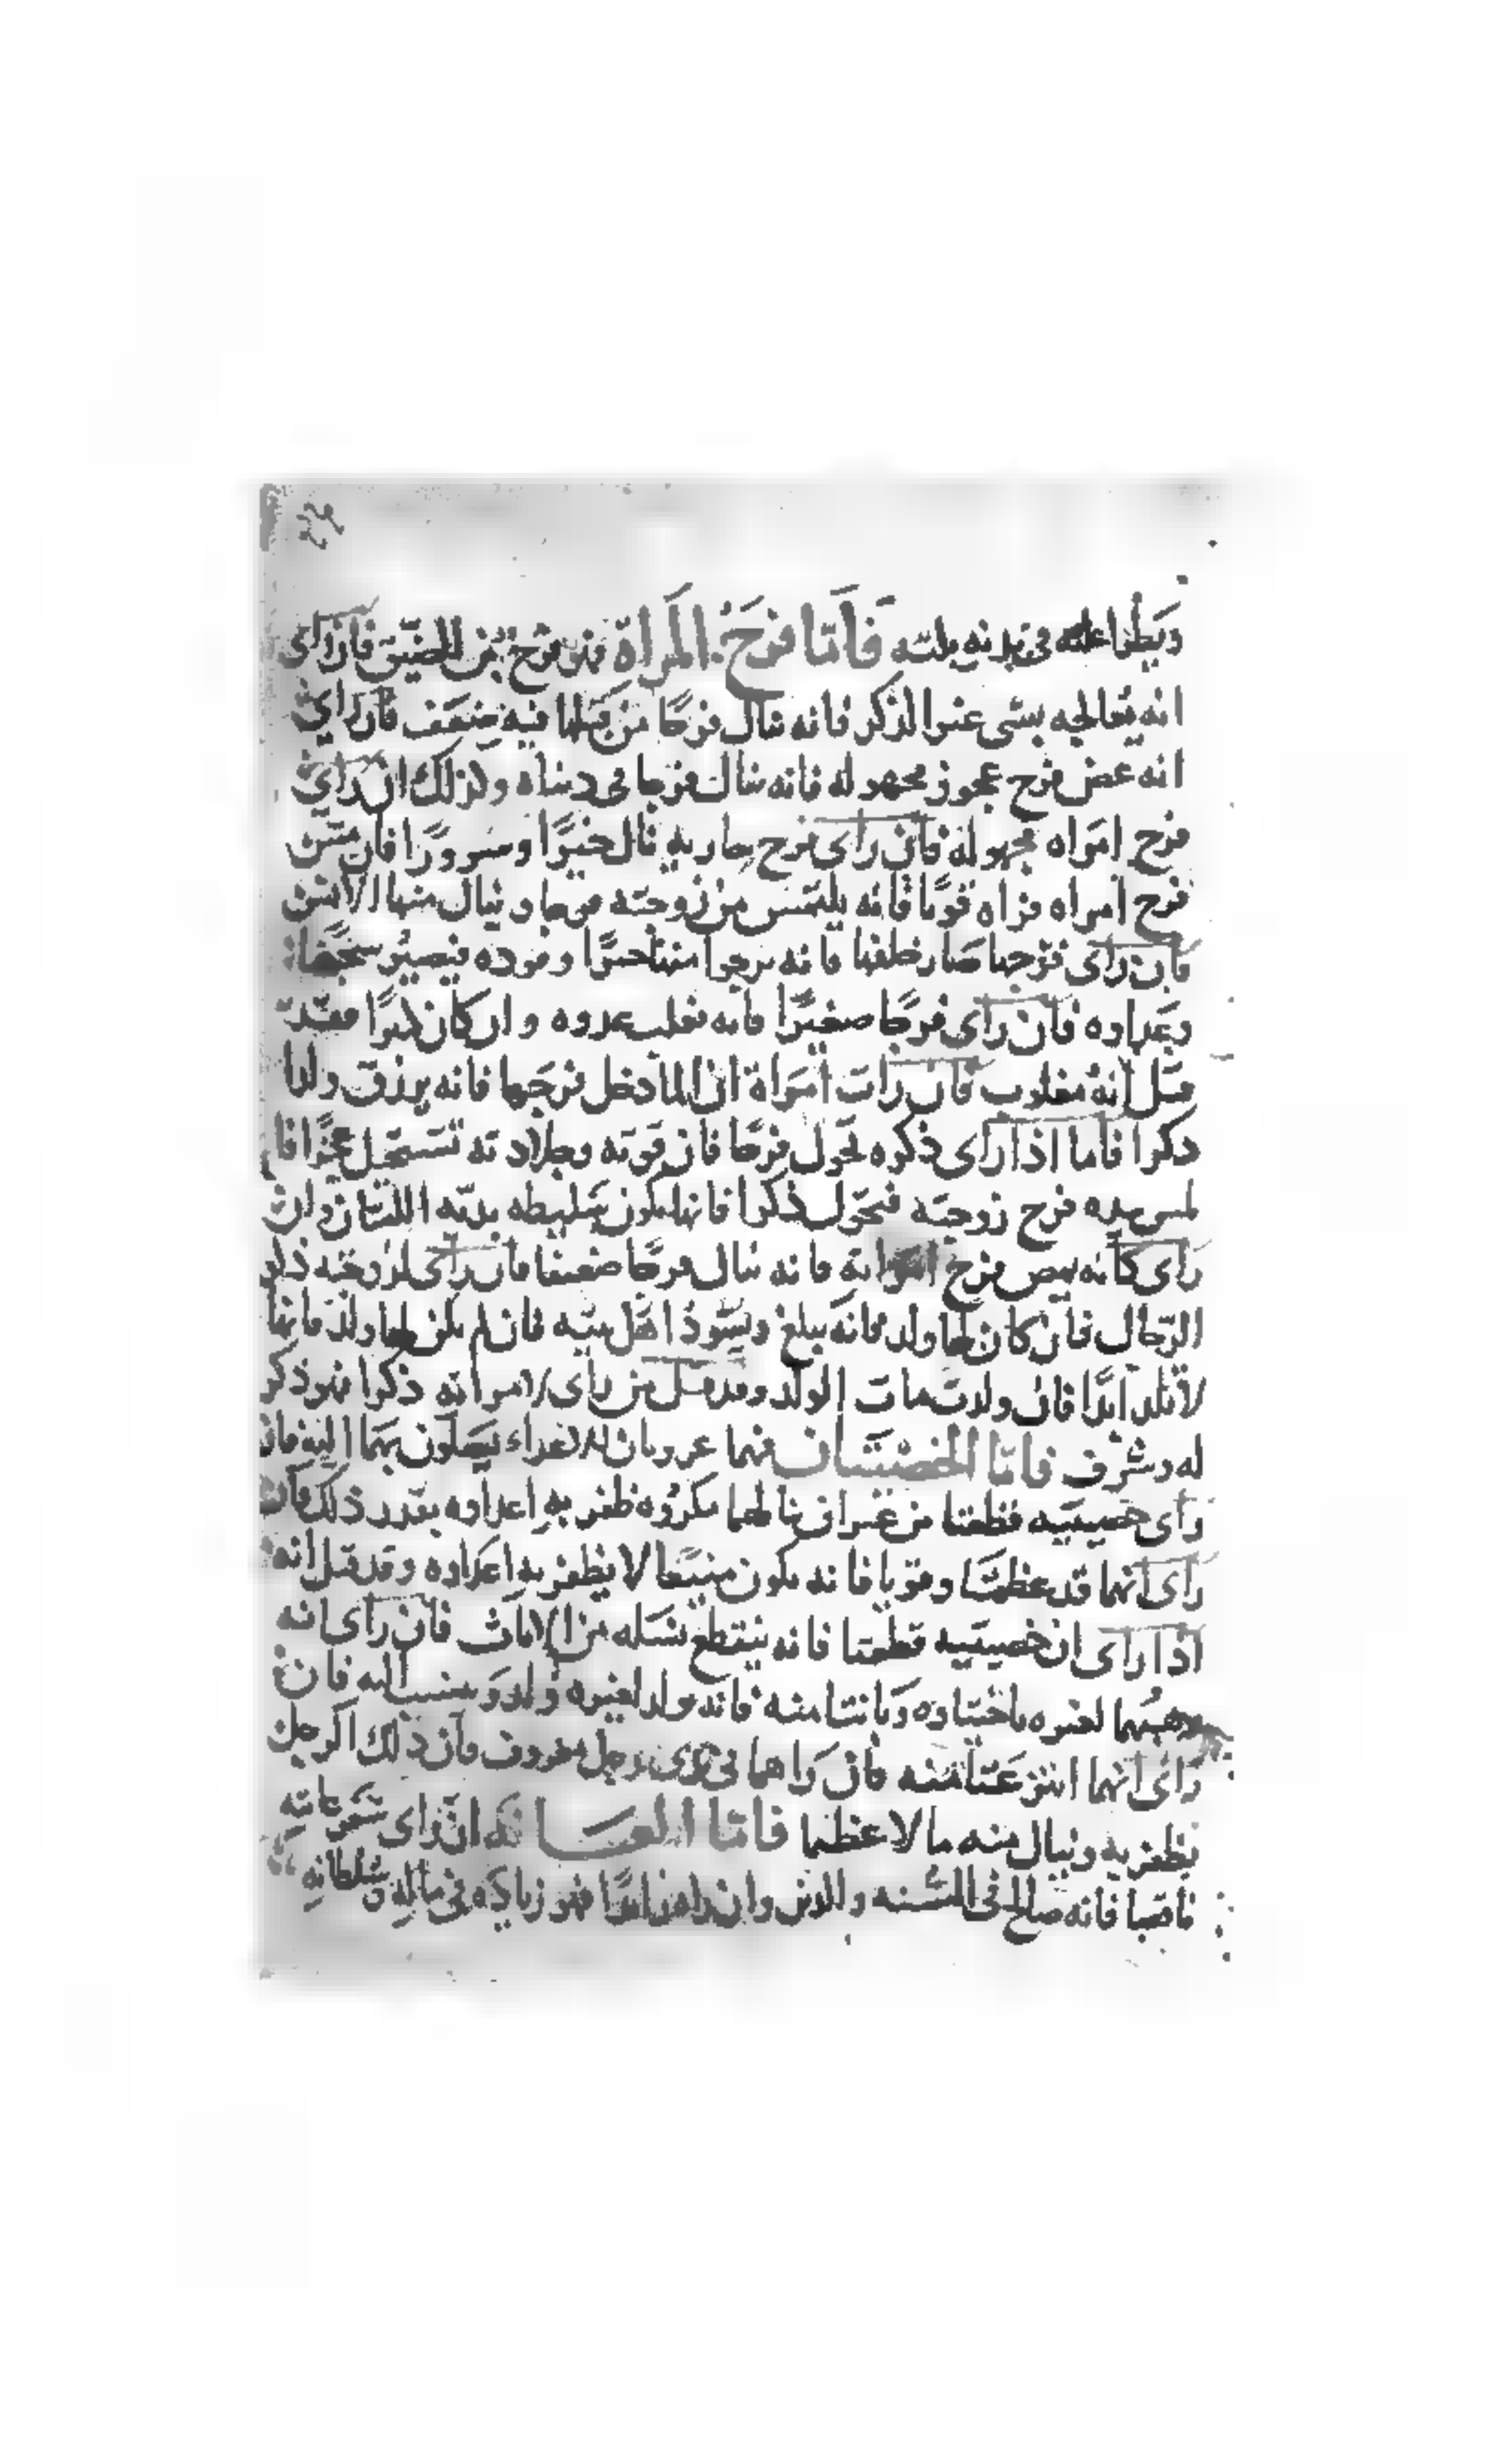 فاما فرج المراة فهو فرج من الضيق فان راى
انه يعالجه بشى غير الذكر فانه ينال فرجا من قبلها فيه ضعف فان راى
انه عض فرج عجوز مجهولة فانه ينال فرجا فى دنياه وكذلك ان راى
فرج امراه مجهولة فان راى فرج جاريه نال خيرا وسرورا فان مس
فرج امراه فراه قويا فانه يلتمس من زوجته فرجا وينال منها
فان راى فرجها صار خلفها فانه يرجوا منها خيرا وموده فيصير
وعداوه فان راى فرجا صغيرا فانه يغلب عدوه وان كان كبيرا فقد
قيل انه مغلوب فان رات امراة ان الما دخل فرجها فانه يرزق ولدا
ذكرا فاما اذا راى ذكره تحول فرجا فان قوته وجلادته تستحيل عجزا فان
لمس بيده فرج زوجته فتحول ذكرا فانها يكون سليطه بذيه اللسان وان
راى كانه يمص فرج امراته فانه ينال فرجا ضعيفا فان راى لزوجته ذكر
الرجال فان كان لها ولد فانه يبلغ ويسود اهل بيته فان لم يكن لها ولد فانها
لا تلد ابدا فان ولدت مات الولد وقد قيل من راى لامراته ذكرا فهو ذكر
له وشرف فاما الخصيتان فهما عروتان للاعداء يصلون بهما اليه فان
راى خصيتيه قطعتا من غير ان نالهما مكروه ظفر به اعداوه بقدر ذلك وان
راى انهما قد عظمتا وقويا فانه يكون منيعا لا يظفر به اعداوه وقد قيل انه
اذا راى ان خصيتيه قطعتا فانه ينقطع نسله من الاناث فان راى انه
وهبهما لغيره باختياره وبانتا منه فانه يولد لغيره ولد وينسب اليه فان
راى انهما انتزعتا منه فان راهما فى يدى رجل معروف فان ذلك الرجل
يظفر به وينال منه مالا عظيما فاما العانه ان راى شعر عانته
ناقصا فانه صالح فى السنه والدين وان راه زايدا فهو زياده فى ماله وسلطانه